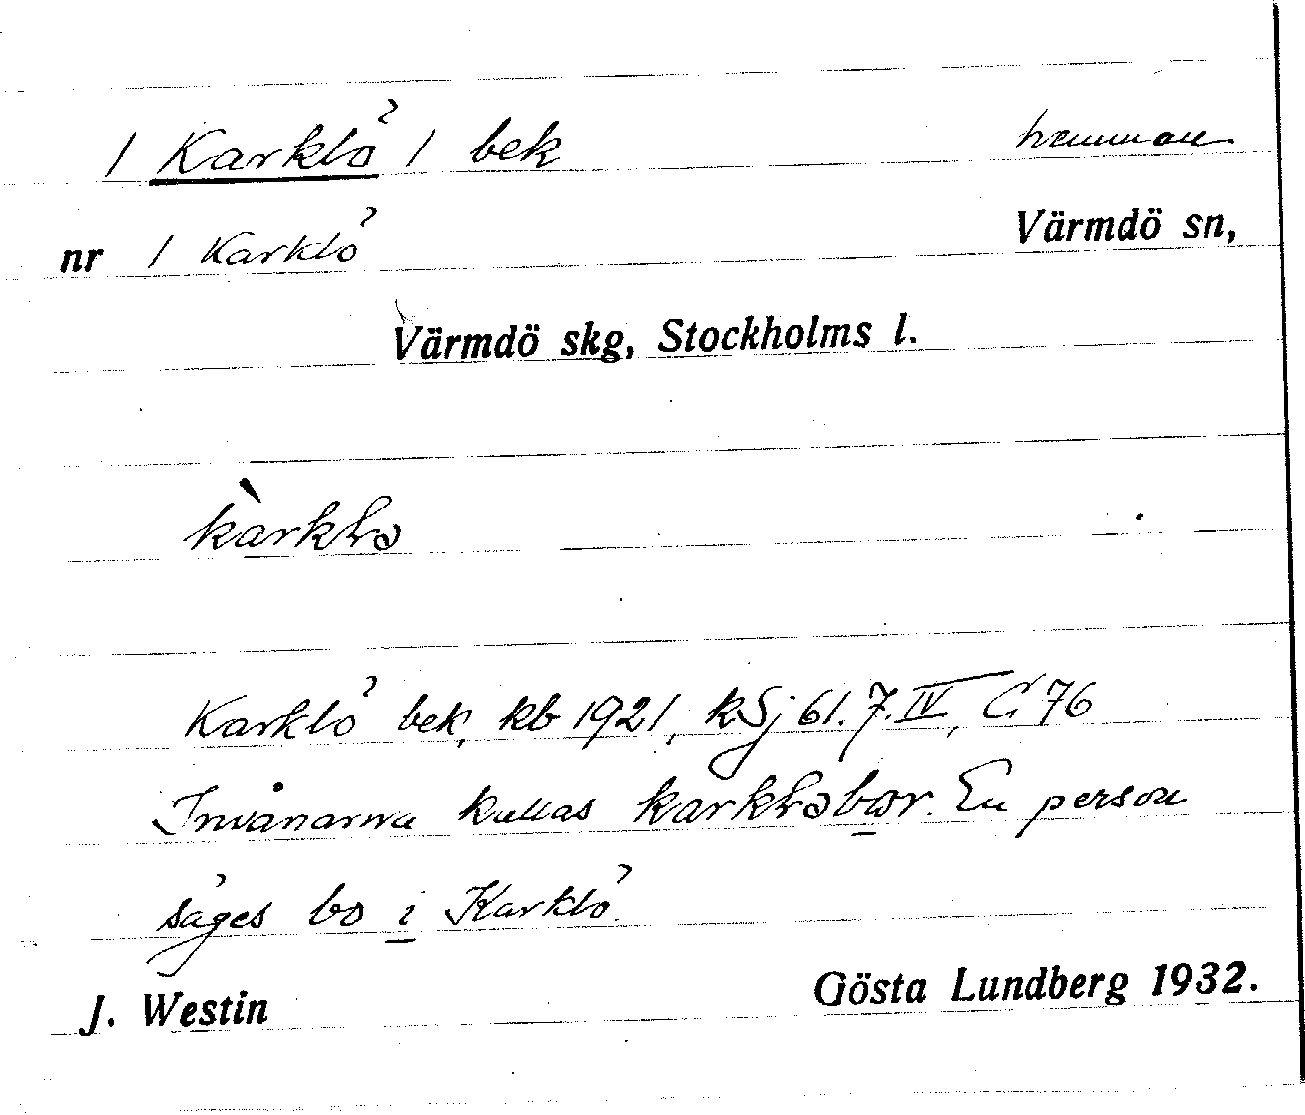 1 Karklö 1 bek hemman
nr 1 Karklö Värmdö sn,
Värmdö skg, Stockholms l.
kàrklo
Karklö bek, kb 1921, kSj 61. 7. IV, C 76
Invånarna kallas karklobor. En person
säges bo i Karklö.
J. Westin Gösta Lundberg 1932.